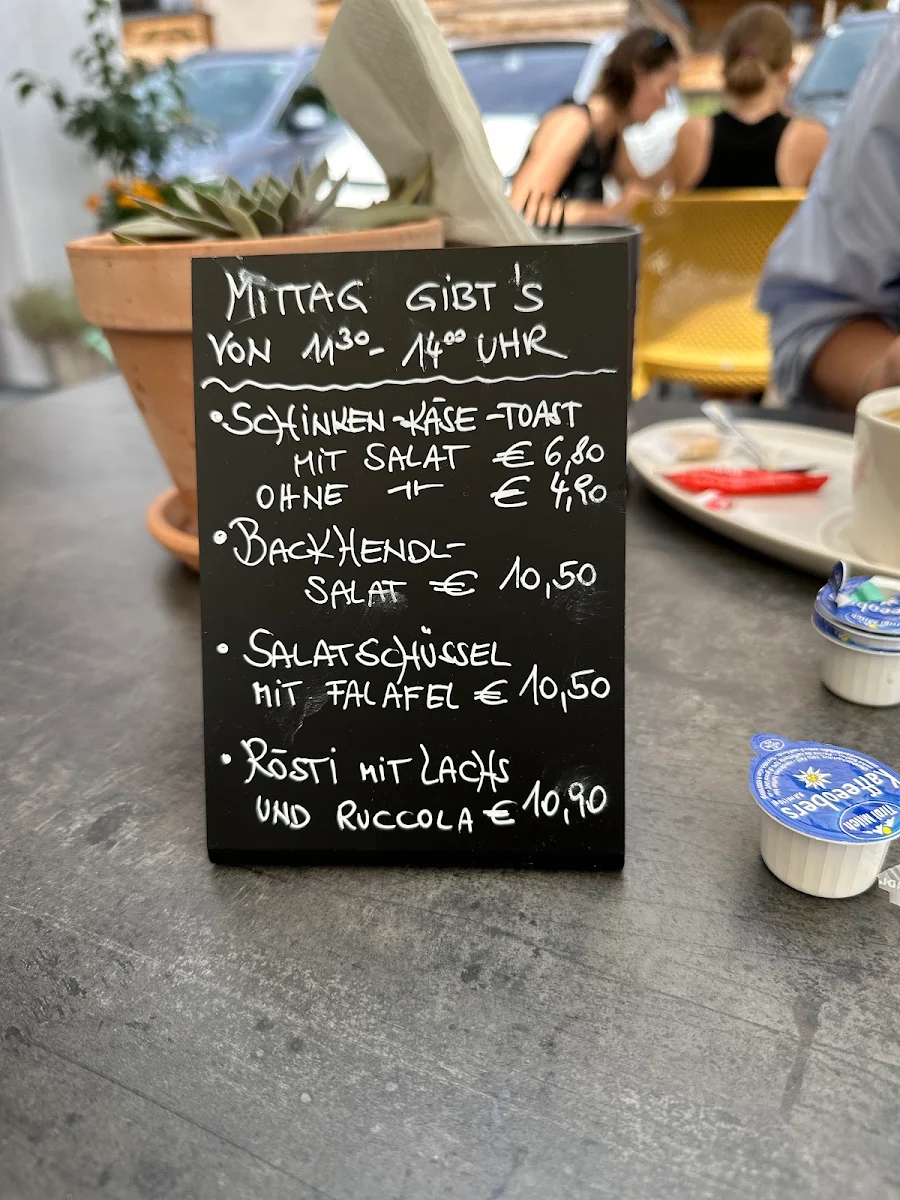 MITTAG GIBT'S
VON 11³⁰- 14⁰⁰ UHR
• SCHINKEN-KÄSE-TOAST
MIT SALAT € 6,80
OHNE -"- € 4,90
• BACKHENDL-
SALAT € 10,50
• SALATSCHÜSSEL
MIT FALAFEL € 10,50
• RÖSTI MIT LACHS
UND RUCCOLA € 10,90
Kaffeeobers
Tirol Milch